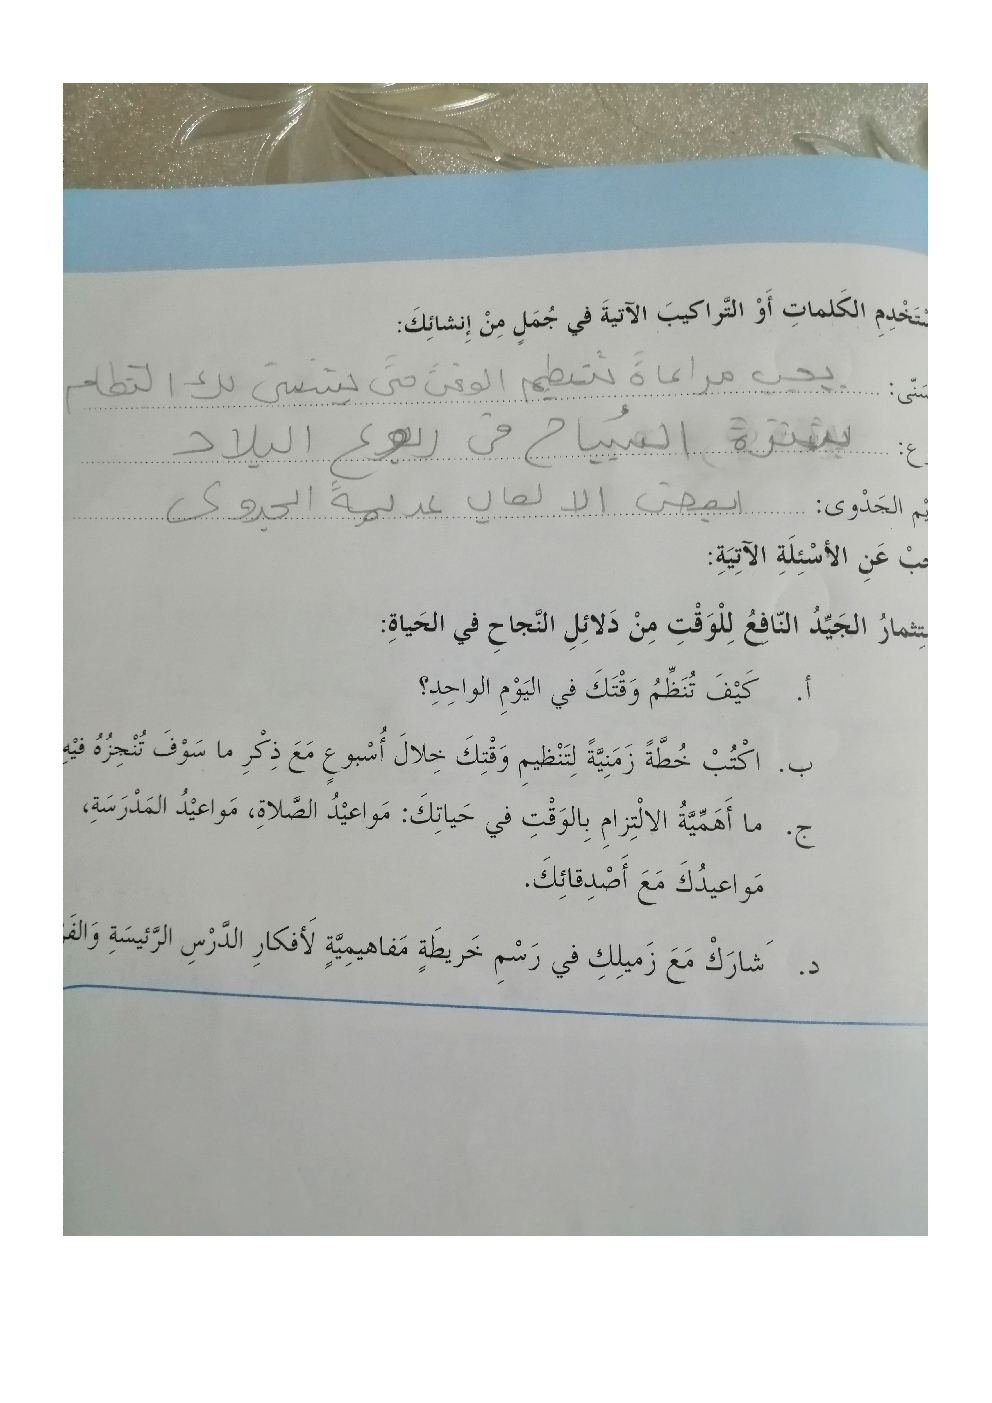 سْتَخْدِمِ الكَلماتِ أَوْ التَّراكيبَ الآتيةَ في جُمَلٍ مِنْ إنشائِكَ:
سَنّى: يجب مراعاة تنظيم الوقت حتى يتسنى لك النظام
وع: يتنزه السُياح في ربوع البلاد
يْم الجَدْوى: بعض الالعاب عديمةَ الجدوى
جِبْ عَنِ الأسْئِلَةِ الآتِيَةِ:
ستِثمارُ الجَيِّدُ النّافِعُ لِلْوَقْتِ مِنْ دَلائِلِ النَّجاحِ في الحَياةِ:
أ. كَيْفَ تُنَظِّمُ وَقْتَكَ في اليَوْمِ الواحِدِ؟
ب. اكْتُبْ خُطَّةً زَمَنِيَّةً لِتَنْظيمِ وَقْتِكَ خِلالَ أُسْبوعٍ مَعَ ذِكْرِ ما سَوْفَ تُنْجِزُهُ فيْهِ
ج. ما أَهَمِّيَّةُ الالْتِزامِ بِالوَقْتِ في حَياتِكَ: مَواعيْدُ الصَّلاةِ، مَواعيْدُ المَدْرَسَةِ،
مَواعيدُكَ مَعَ أَصْدِقائِكَ.
د. َشارَكْ مَعَ زَميلِكِ في رَسْمِ خَريطَةٍ مَفاهيمِيَّةٍ لَأفكارِ الدَّرْسِ الرَّئيسَةِ وَالفَر